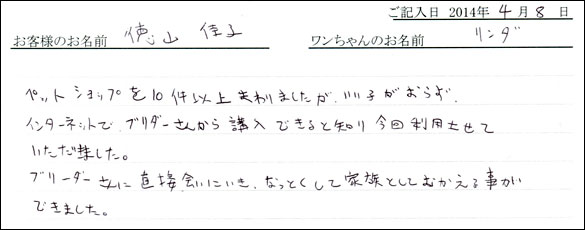 ご記入日 2014年 4月 8日
お客様のお名前 徳山 佳子 ワンちゃんのお名前 リンダ
ペットショップを10件以上まわりましたが、いい子がおらず、
インターネットで、ブリダーさんから講入できると知り今回利用させて
いただきました。
ブリーダーさんに直接会いにいき、なっとくして家族としてむかえる事が
できました。